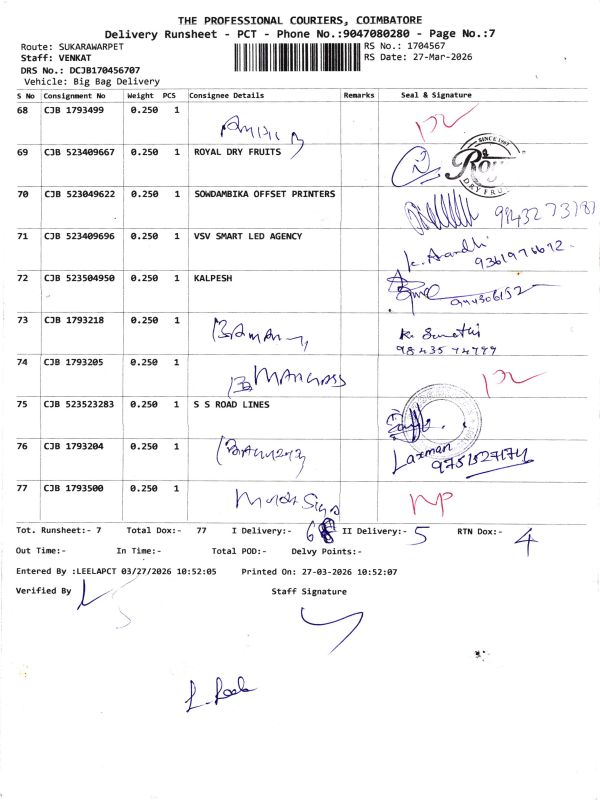 THE PROFESSIONAL COURIERS, COIMBATORE
Delivery Runsheet - PCT - Phone No.:9047080280 - Page No.:7
Route: SUKARAWARPET
RS No.: 1704567
Staff: VENKAT
RS Date: 27-Mar-2026
DRS No.: DCJB170456707
Vehicle: Big Bag Delivery
S No Consignment No Weight PCS Consignee Details Remarks Seal & Signature
68 CJB 1793499 0.250 1
69 CJB 523409667 0.250 1 ROYAL DRY FRUITS
SINCE 1997
DRY FRU
70 CJB 523049622 0.250 1 SOWDAMBIKA OFFSET PRINTERS
71 CJB 523409696 0.250 1 VSV SMART LED AGENCY
72 CJB 523504950 0.250 1 KALPESH
73 CJB 1793218 0.250 1
74 CJB 1793205 0.250 1
75 CJB 523523283 0.250 1 S S ROAD LINES
76 CJB 1793204 0.250 1 Laxman
77 CJB 1793500 0.250 1
Tot. Runsheet:- 7 Total Dox:- 77 I Delivery:- II Delivery:- 5 RTN Dox:- 4
Out Time:- In Time:- Total POD:- Delvy Points:-
Entered By :LEELAPCT 03/27/2026 10:52:05 Printed On: 27-03-2026 10:52:07
Verified By Staff Signature